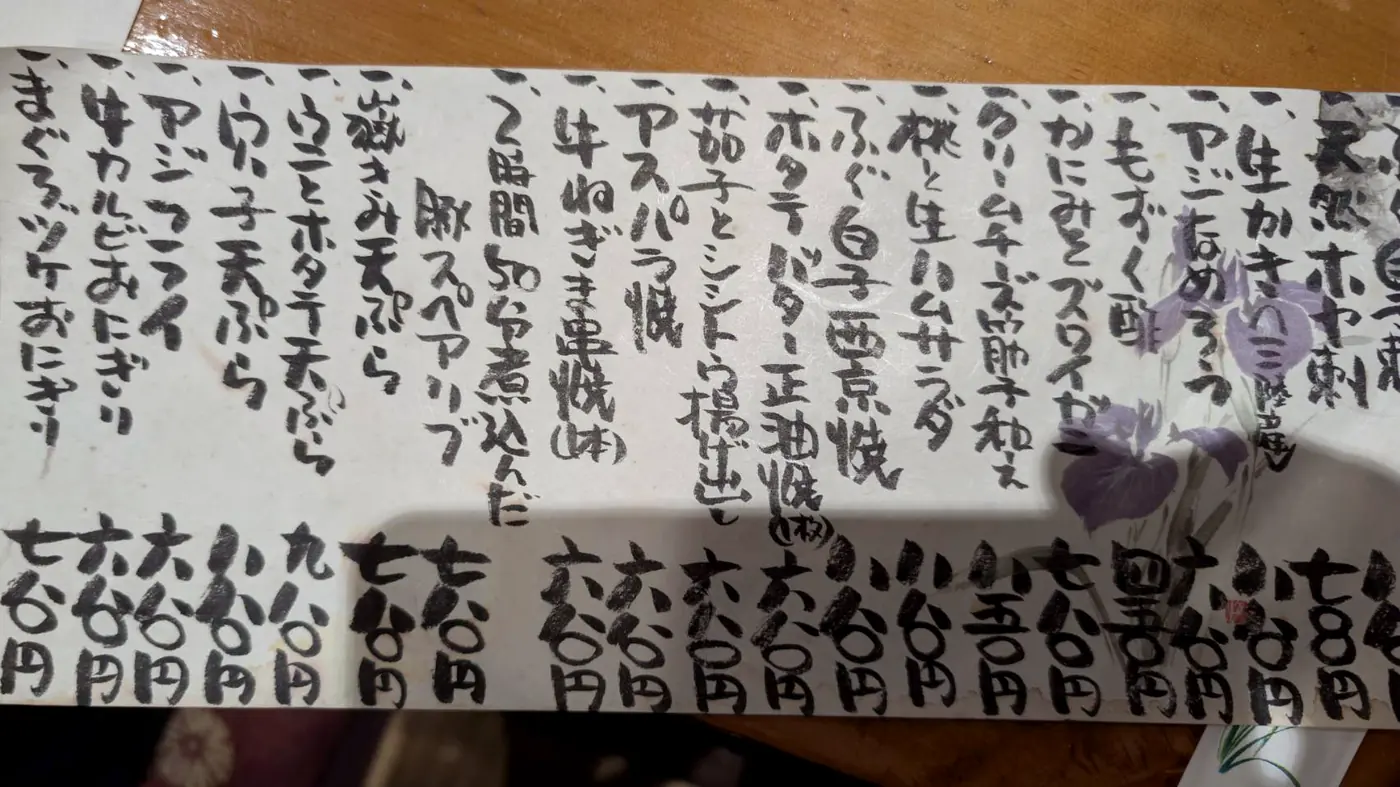 一、天然ホヤ刺 七八〇円
一、生かき(三陸産) 八八〇円
一、アジなめろう 六八〇円
一、もずく酢 四五〇円
一、かにみそズワイガニ 七八〇円
一、クリームチーズ筋子和え 八五〇円
一、桃と生ハムサラダ 八八〇円
一、ふぐ白子西京焼 八八〇円
一、ホタテバター正油焼(1枚) 六八〇円
一、茄子とシシトウ揚げ出し 六八〇円
一、アスパラ焼 六八〇円
一、牛ねぎま串焼(一本) 六八〇円
一、2時間50分煮込んだ
豚スペアリブ 七八〇円
一、嶽きみ天ぷら 七八〇円
一、ウニとホタテ天ぷら 九八〇円
一、穴子天ぷら 八八〇円
一、アジフライ 六八〇円
一、牛カルビおにぎり 六八〇円
一、まぐろヅケおにぎり 七八〇円